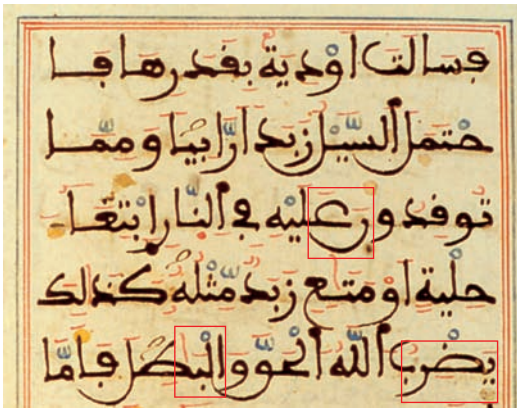 فسالت اودية بقدرها فا
حتمل السيل زبدا رّابيا وممّا
توقدون عليه في النّار ابتغاء
حلية او متع زبد مّثله كذلك
يضرب الله الحقّ والبطل فامّا